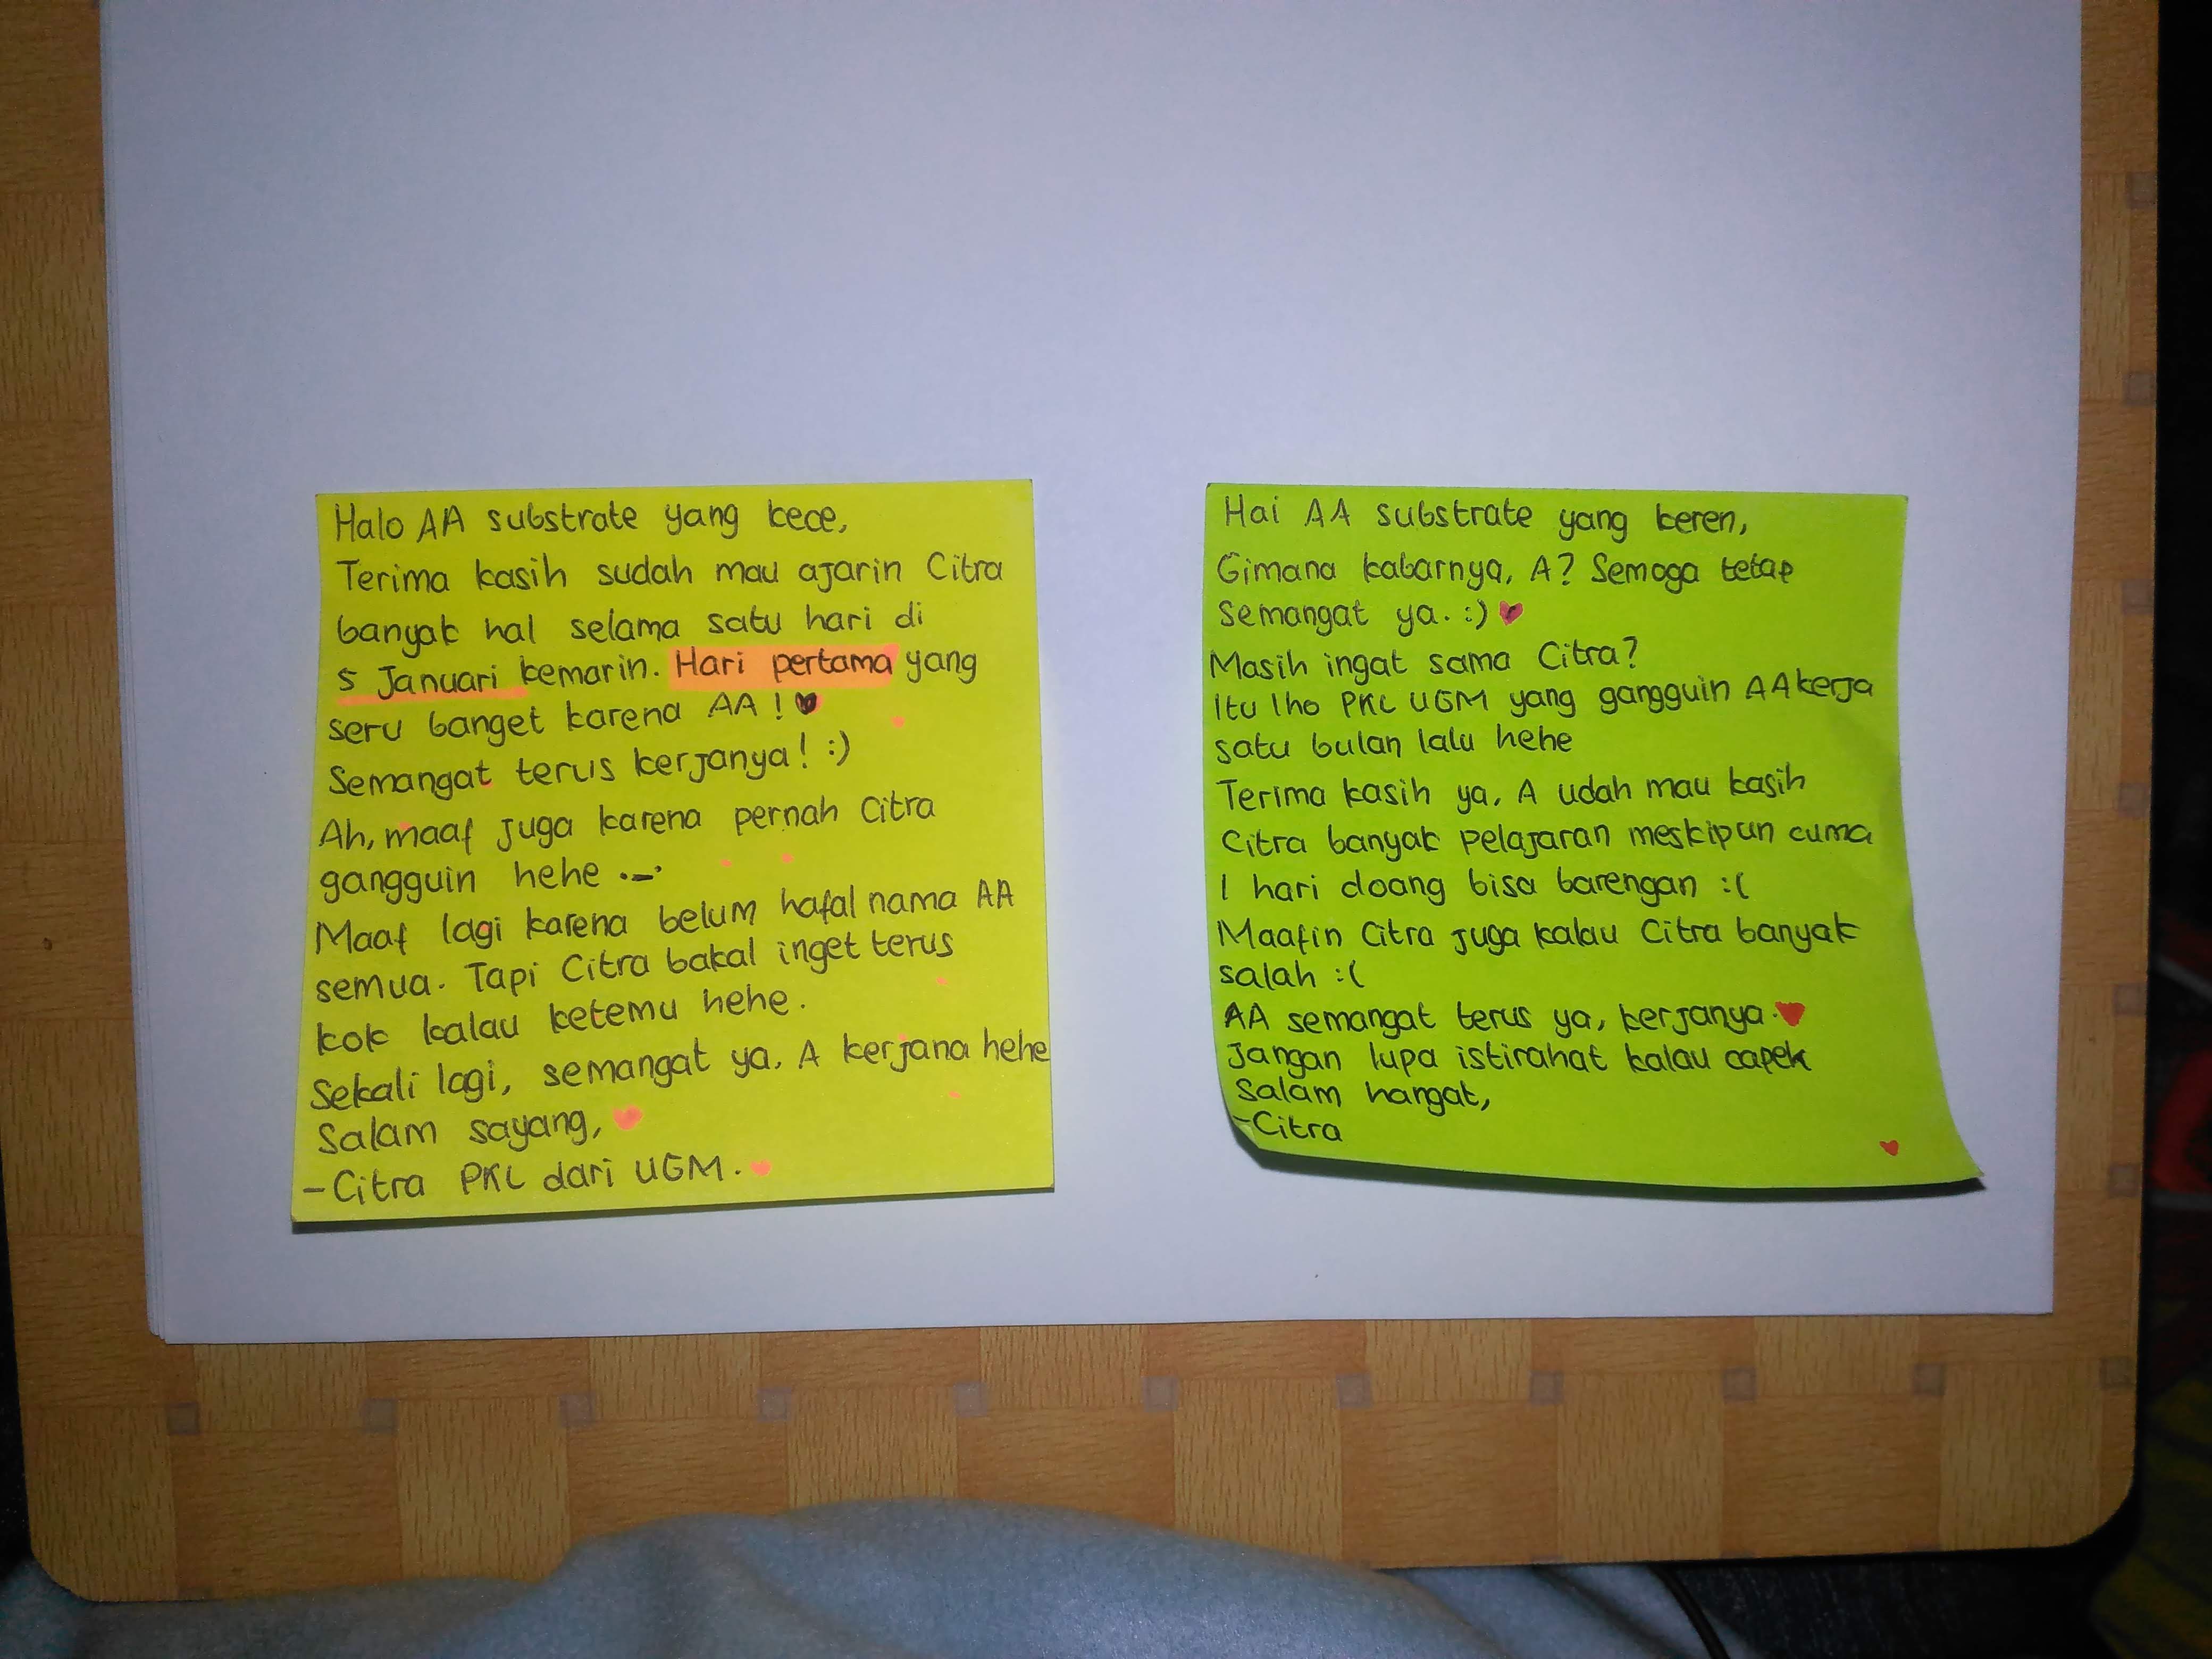 Halo AA substrate yang kece,
Terima kasih sudah mau ajarin Citra
banyak hal selama satu hari di
5 Januari kemarin. Hari pertama yang
seru banget karena AA! ♥
Semangat terus kerjanya! :)
Ah, maaf juga karena pernah Citra
gangguin hehe ._.
Maaf lagi karena belum hafal nama AA
semua. Tapi Citra bakal inget terus
kok kalau ketemu hehe.
Sekali lagi, semangat ya, A kerjana hehe
Salam sayang, ♥
-Citra PKL dari UGM. ♥
Hai AA substrate yang keren,
Gimana kabarnya, A? Semoga tetap
semangat ya. :) ♥
Masih ingat sama Citra?
Itu lho PKL UGM yang gangguin AA kerja
satu bulan lalu hehe
Terima kasih ya, A udah mau kasih
Citra banyak pelajaran meskipun cuma
1 hari doang bisa barengan :(
Maafin Citra juga kalau Citra banyak
salah :(
AA semangat terus ya, kerjanya. ♥
Jangan lupa istirahat kalau capek
Salam hangat,
-Citra